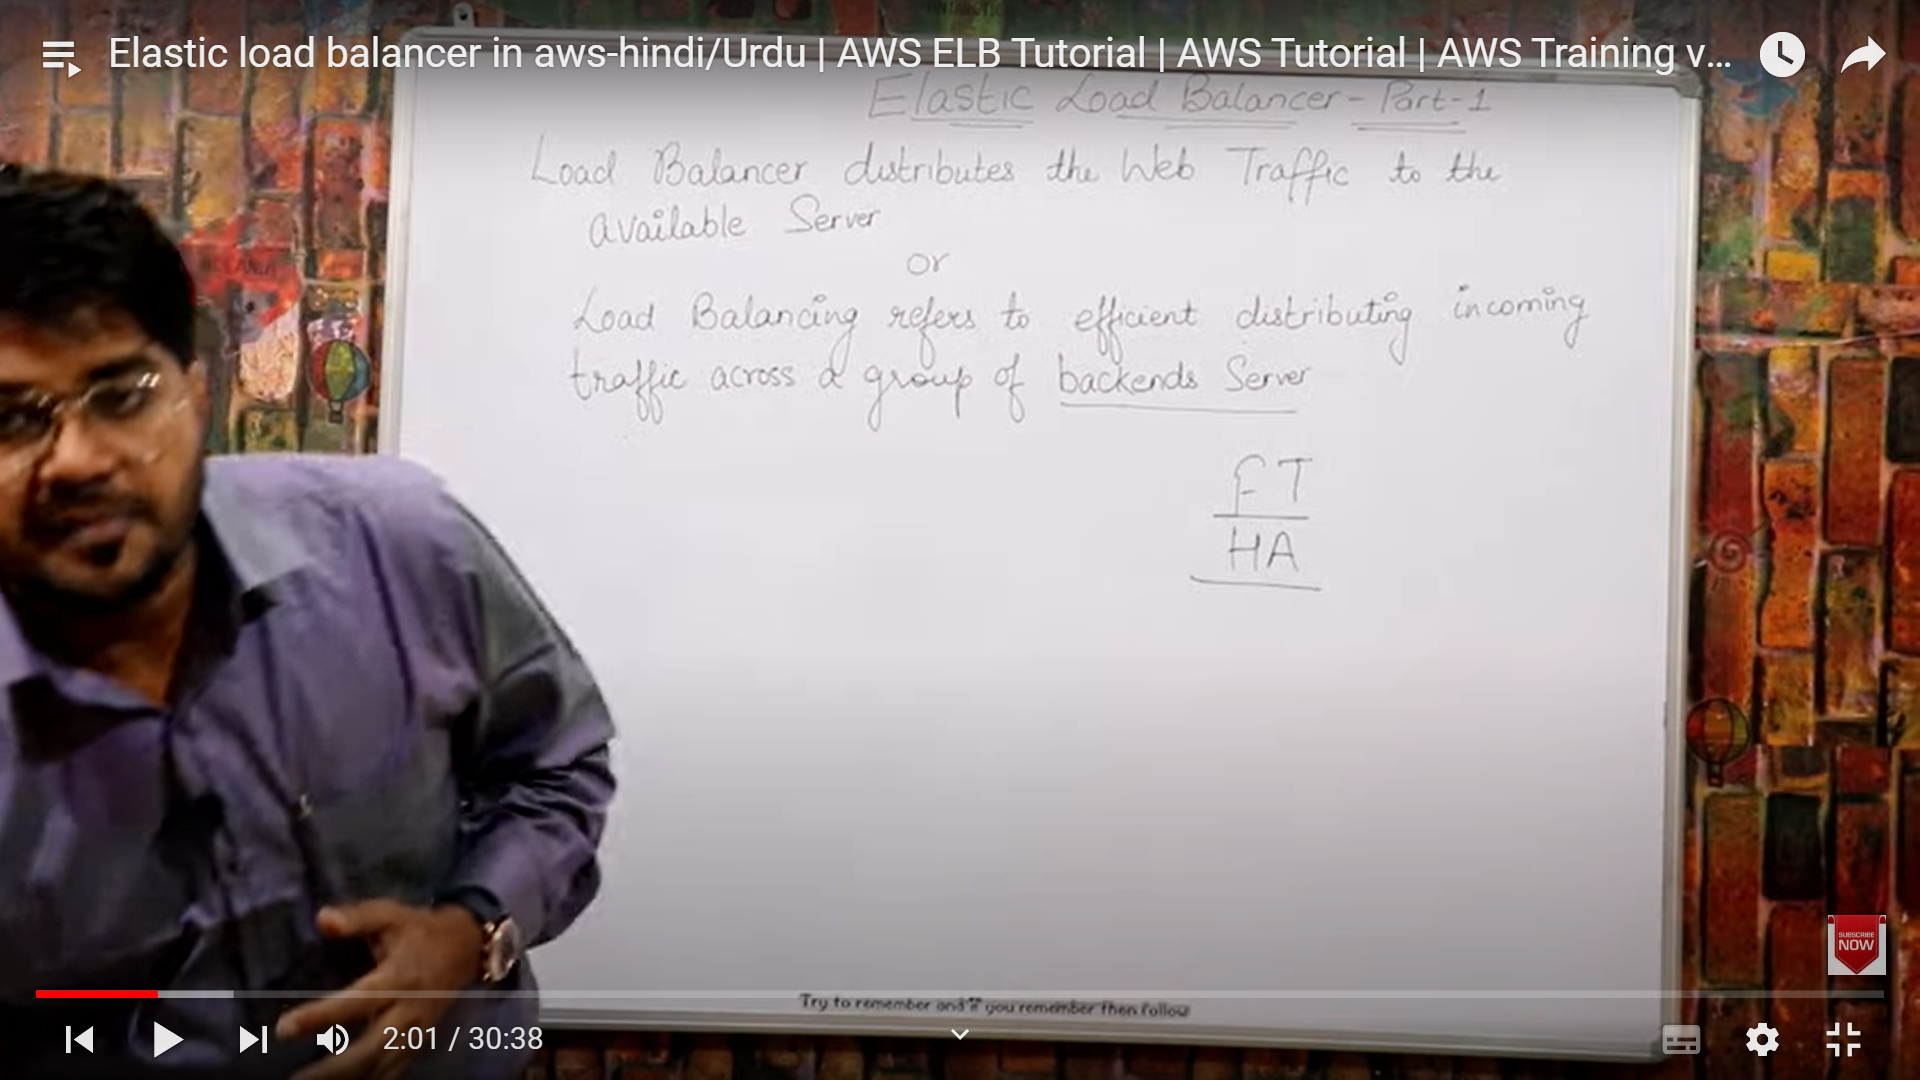 Elastic load balancer in aws-hindi/Urdu | AWS ELB Tutorial | AWS Tutorial | AWS Training v...
Elastic Load Balancer - Part-1
Load Balancer distributes the Web Traffic to the
available Server
or
Load Balancing refers to efficient distributing incoming
traffic across a group of backends Server
FT
HA
SUBSCRIBE
NOW
Try to remember and if you remember then follow
2:01 / 30:38